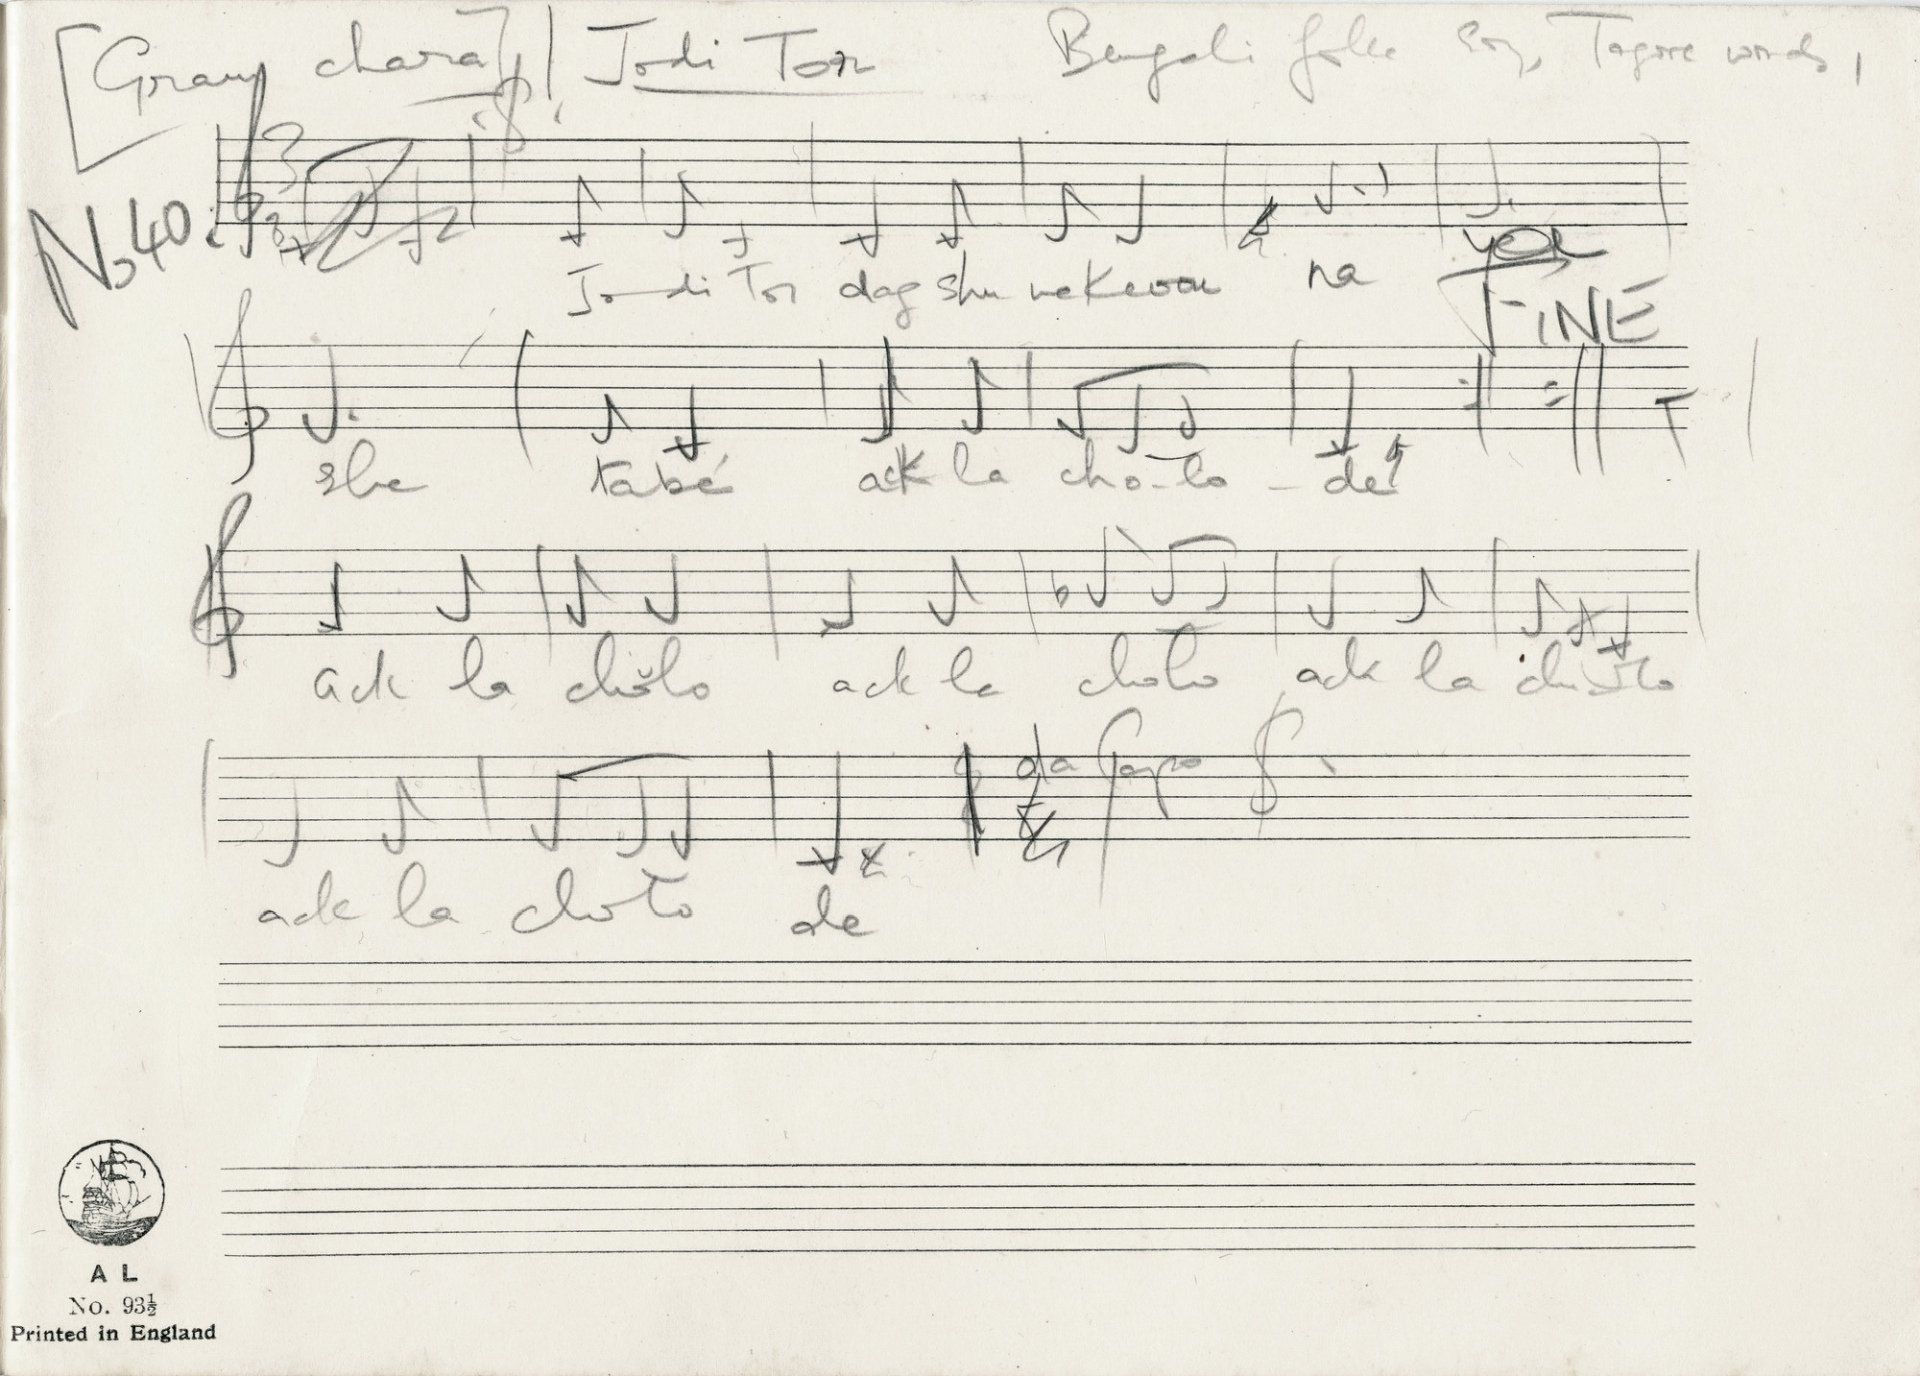 [Gram chara] Jodi Tor Bengali folk song, Tagore words,
No 40.
Jodi Tor dag shu ne Kevou na
FINE
she tabé ack la cho-lo - de
ack la cholo ack la cholo ack la cholo
da Capo
ack la cholo de
A L
No. 93½
Printed in England